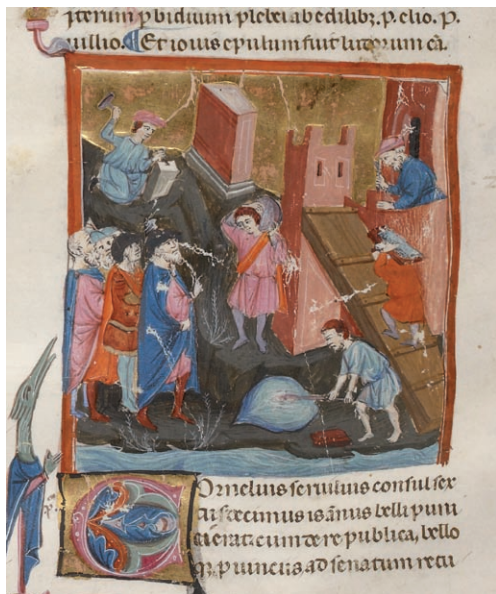 iterum p biduum plebei ab edilibꝫ. p. elio. p.
uillio. Et iouis epulum fuit ludorum cā.
Cornelius seruilius consul sex
tusdecimus is ānus belli puni
ci erat. cum de re publica, bello
qꝫ puinciis ad senatum retu